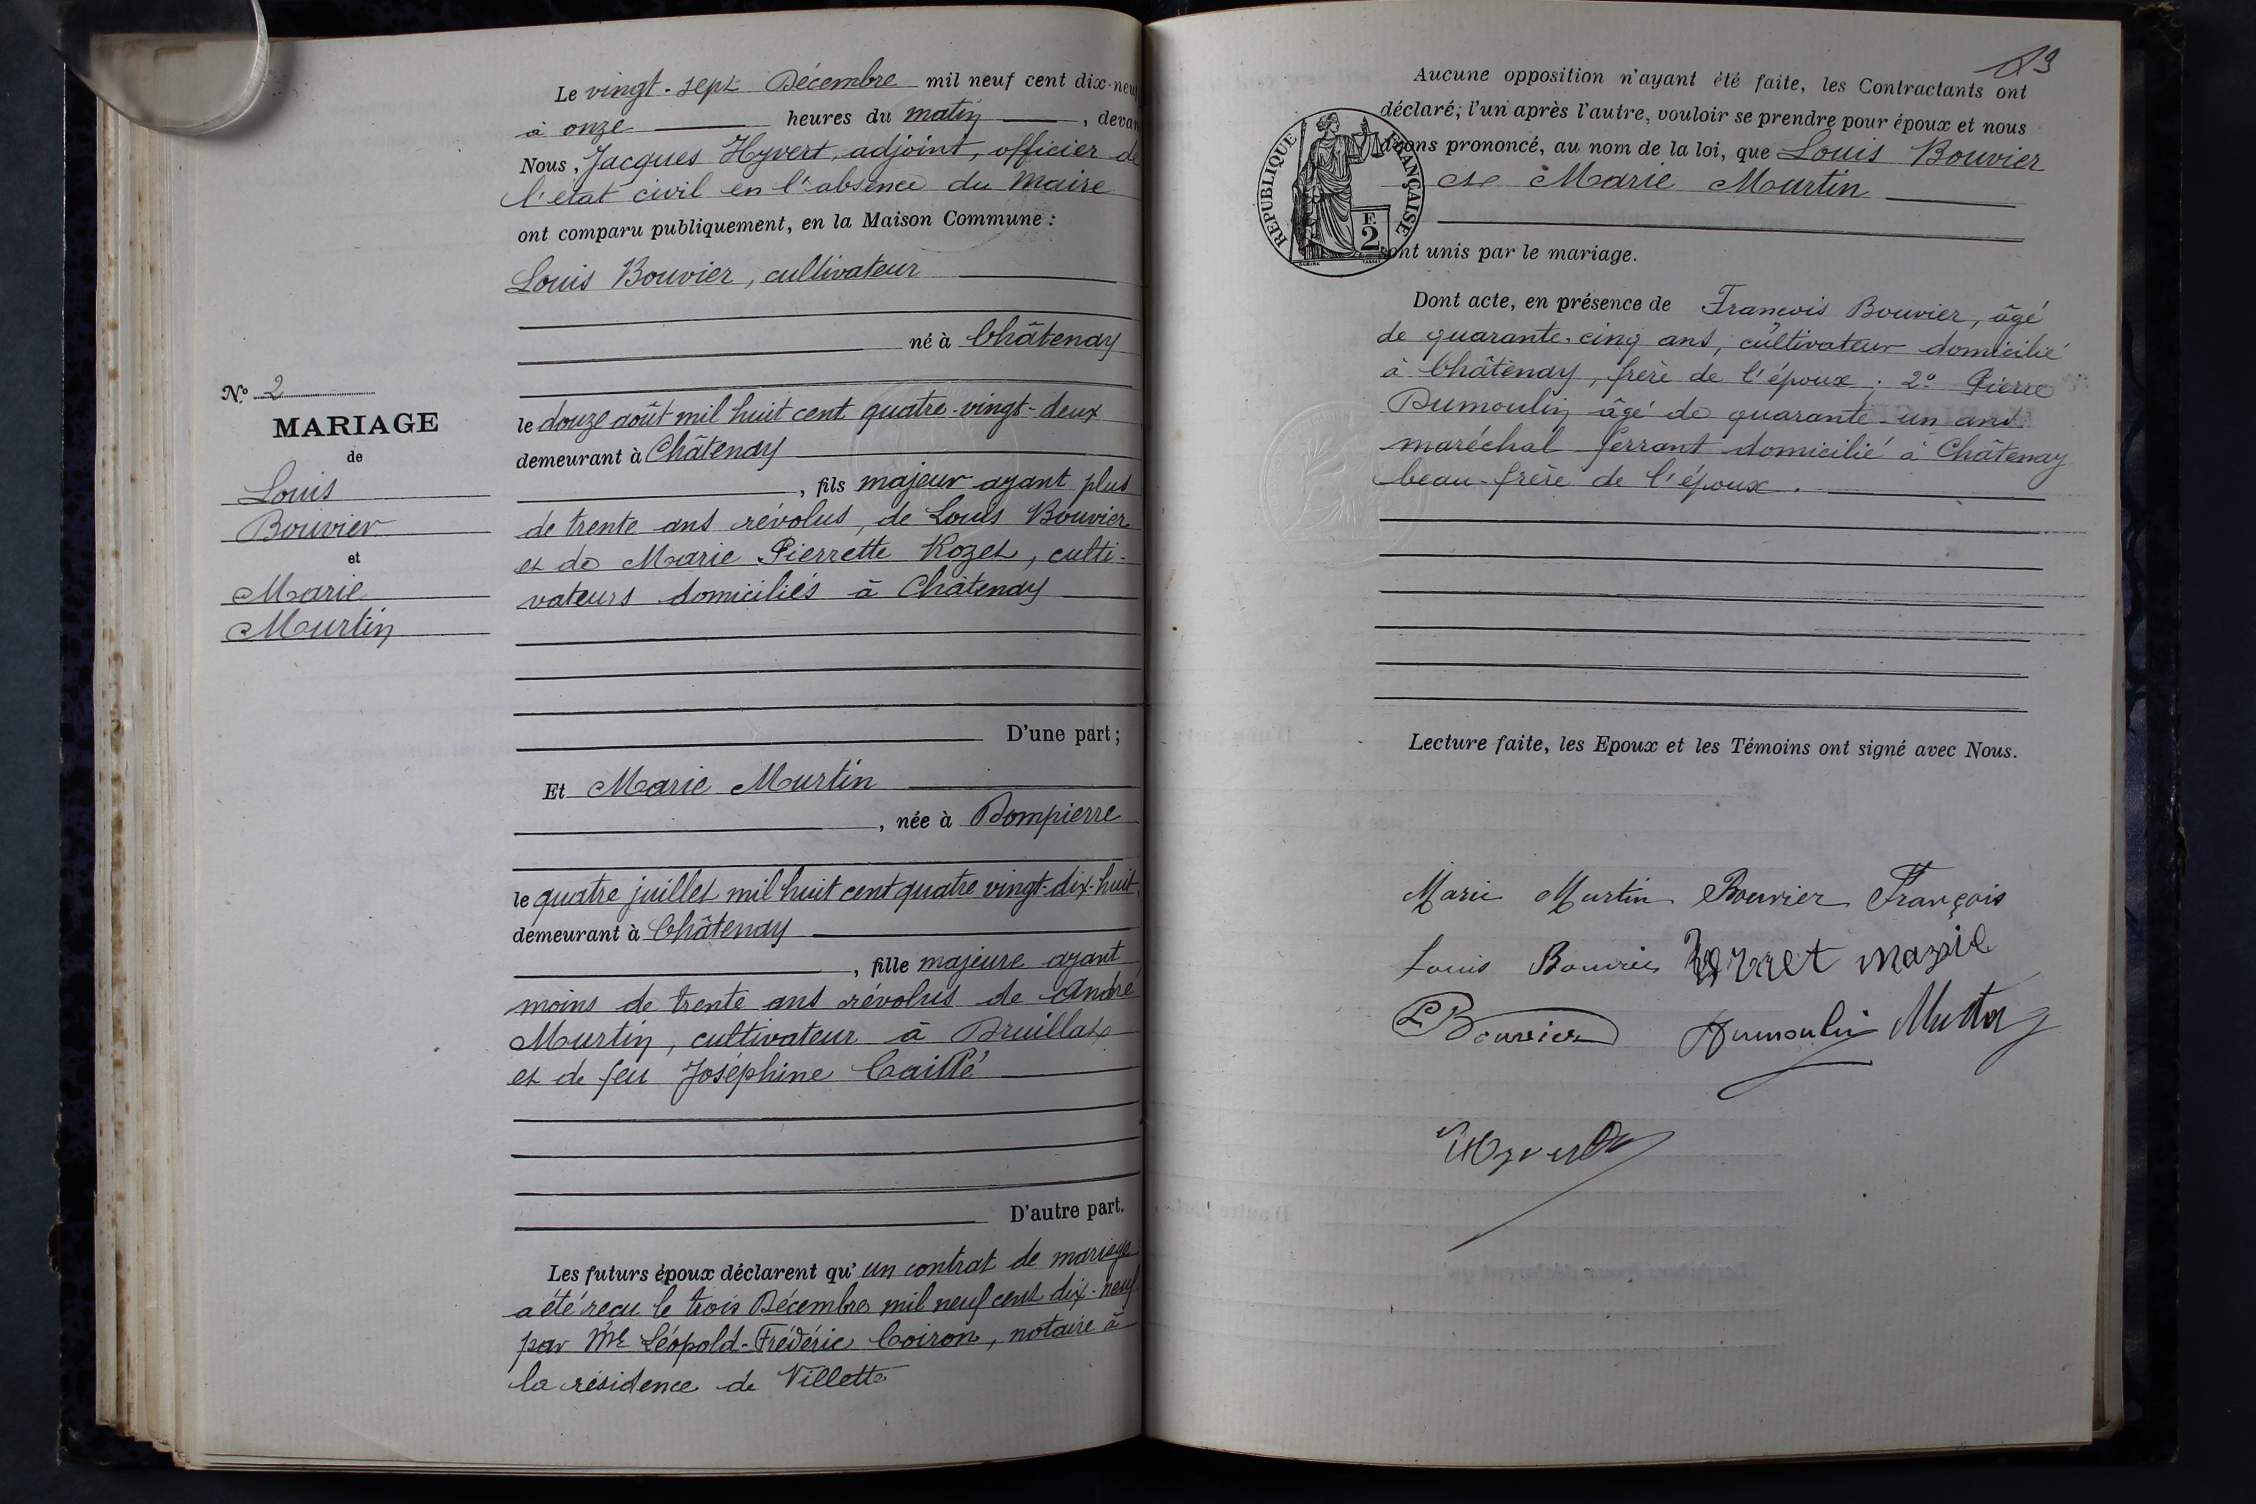 Le vingt-sept Décembre mil neuf cent dix-neuf
à onze heures du matin, devant
Nous, Jacques Hyvert, adjoint, officier de
l'état civil en l'absence du Maire
ont comparu publiquement, en la Maison Commune :
Louis Bouvier, cultivateur
né à Châtenay
le douze août mil huit cent quatre-vingt-deux
demeurant à Châtenay
, fils majeur ayant plus
de trente ans révolus, de Louis Bouvier
et de Marie Pierrette Rozet, culti-
vateurs domiciliés à Châtenay
D'une part ;
Et Marie Murtin
, née à Dompierre
le quatre juillet mil huit cent quatre vingt-dix-huit
demeurant à Châtenay
, fille majeure ayant
moins de trente ans révolus de André
Murtin, cultivateur à Druillat
et de feu Joséphine Caillé
D'autre part.
Les futurs époux déclarent qu'un contrat de mariage
a été reçu le trois Décembre mil neuf cent dix-neuf
par Me Léopold-Frédéric Coiron, notaire à
la résidence de Villette
N.° 2
MARIAGE
de
Louis
Bouvier
et
Marie
Murtin
Aucune opposition n'ayant été faite, les Contractants ont
déclaré, l'un après l'autre, vouloir se prendre pour époux et nous
avons prononcé, au nom de la loi, que Louis Bouvier
et Marie Murtin
sont unis par le mariage.
RÉPUBLIQUE FRANÇAISE
F. 2
Dont acte, en présence de Francois Bouvier, âgé
de quarante-cinq ans, cultivateur domicilié
à Châtenay, frère de l'époux ; 2° Pierre
Dumoulin âgé de quarante-un ans
maréchal ferrant domicilié à Châtenay
beau-frère de l'époux.
Lecture faite, les Epoux et les Témoins ont signé avec Nous.
Marie Murtin Bouvier François
Louis Bouvier
L Bouvier Dumoulin
Hyvert